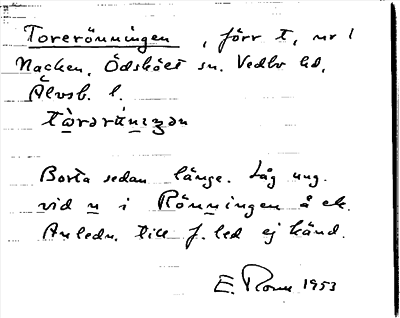 Torerönningen, förr t, nr 1
Nacken, Ödskölt sn. Vedbo hd,
Älvsb. l.
tàrərǘniŋən
Borta sedan länge. Låg ung.
vid n i Rönningen å ek.
Anledn. till f. led ej känd.
E. 1953